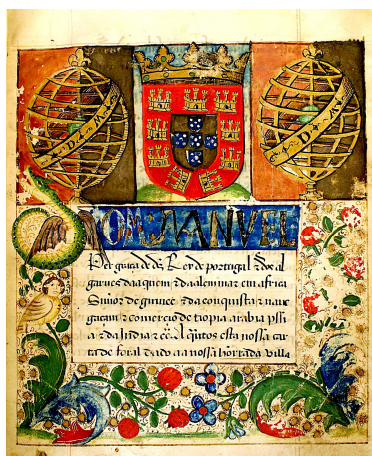 DOM MANVEL
Per graca de ds Rey de portugal z do al
garue daaquem z daalem mar em africa
Senior de guinee z da conquista z naue
gacam z comercio de tiopia arabia pssia
z da India zc A quātos esta nossa car
ta de foral dado aa nossa honrrada villa